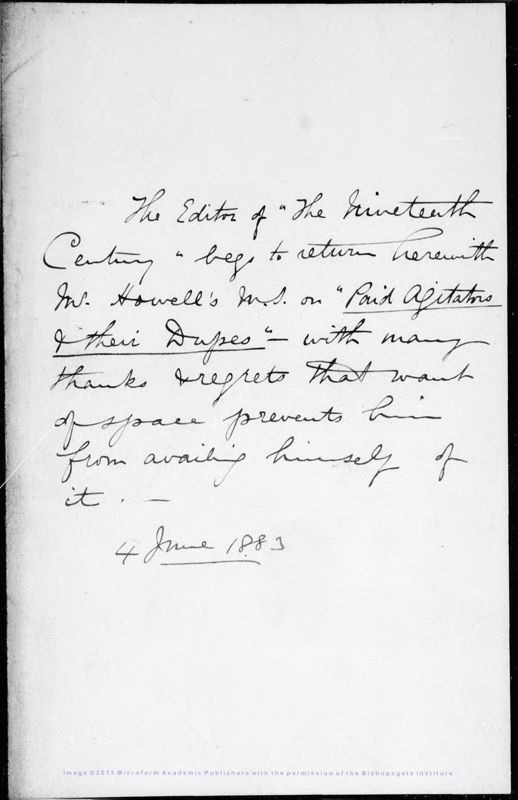 The Editor of "The Nineteenth
Century" begs to return herewith
Mr. Howell's M.S. on "Paid Agitators
& their Dupes" — with many
thanks & regrets that want
of space prevents him
from availing himself of
it. —
4 June 1883
Image ©2013 Microform Academic Publishers with the permission of the Bishopsgate Institute